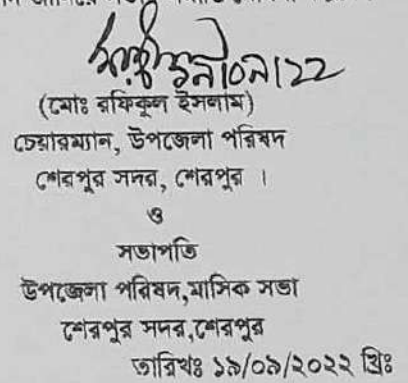 ১৯/০৯/২২
(মোঃ রফিকুল ইসলাম)
চেয়ারম্যান, উপজেলা পরিষদ
শেরপুর সদর, শেরপুর ।
ও
সভাপতি
উপজেলা পরিষদ,মাসিক সভা
শেরপুর সদর,শেরপুর
তারিখঃ ১৯/০৯/২০২২ খ্রিঃ